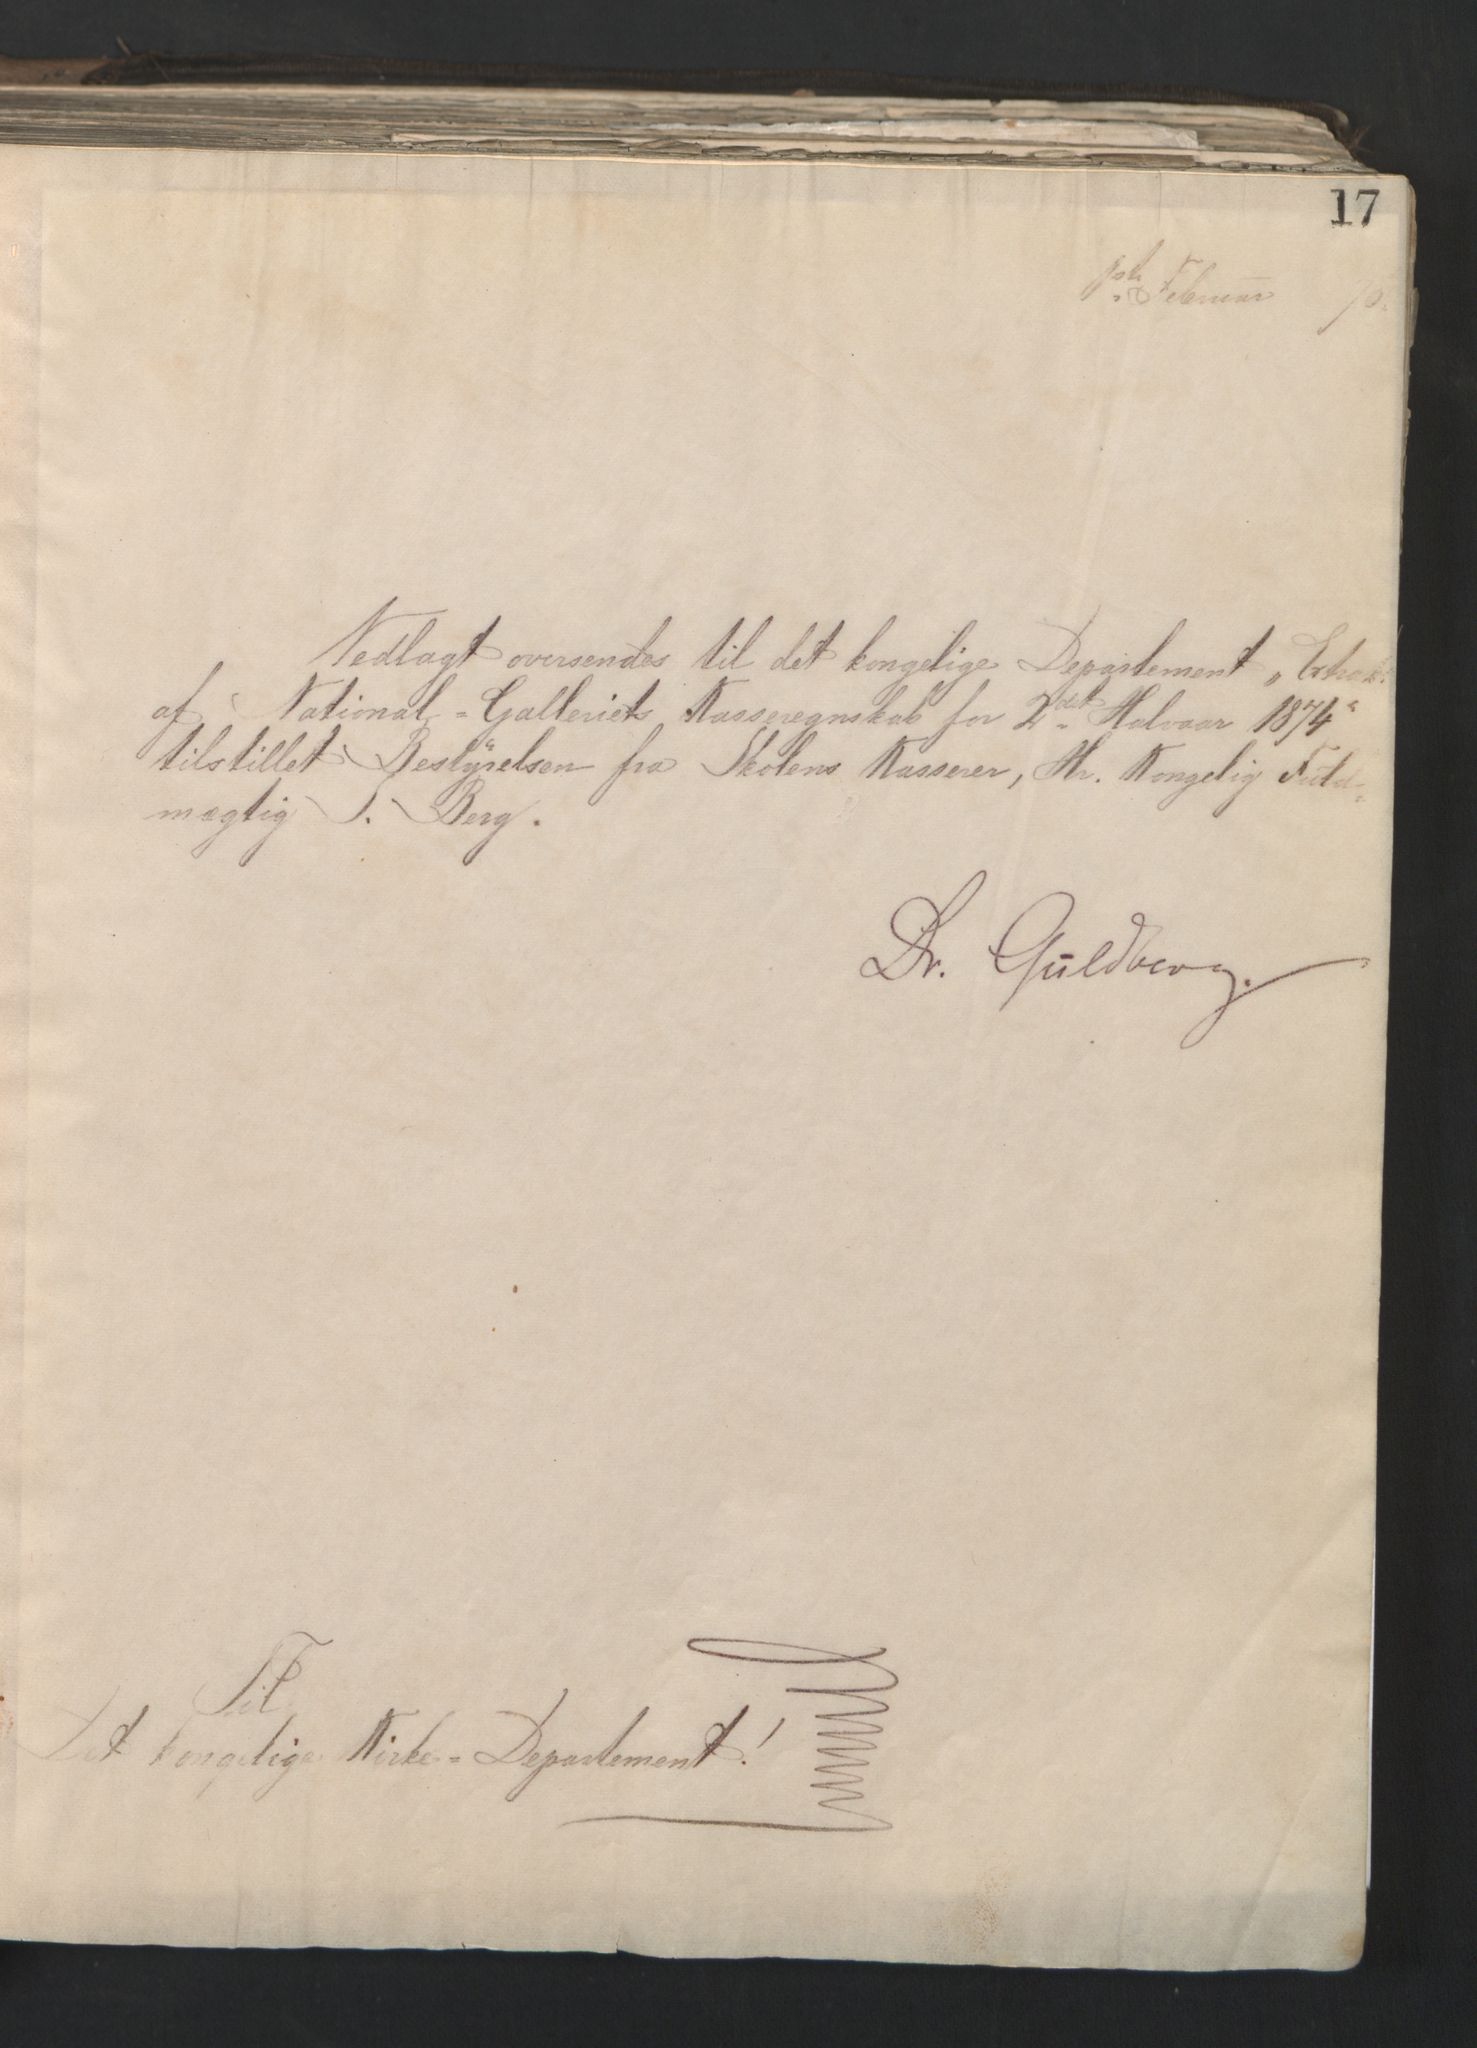 17
Februar
Vedlagt oversendes til det kongelige Departement „Extrakt
af National-Galleriets Kasseregnskab for 2det Halvaar 1874“
tilstillet Bestyrelsen fra Skolens Kasserer, Hr. Kongelig Fuld-
mægtig S. Berg.
Dr. Guldberg.
Til
Det kongelige Kirke-Departement!